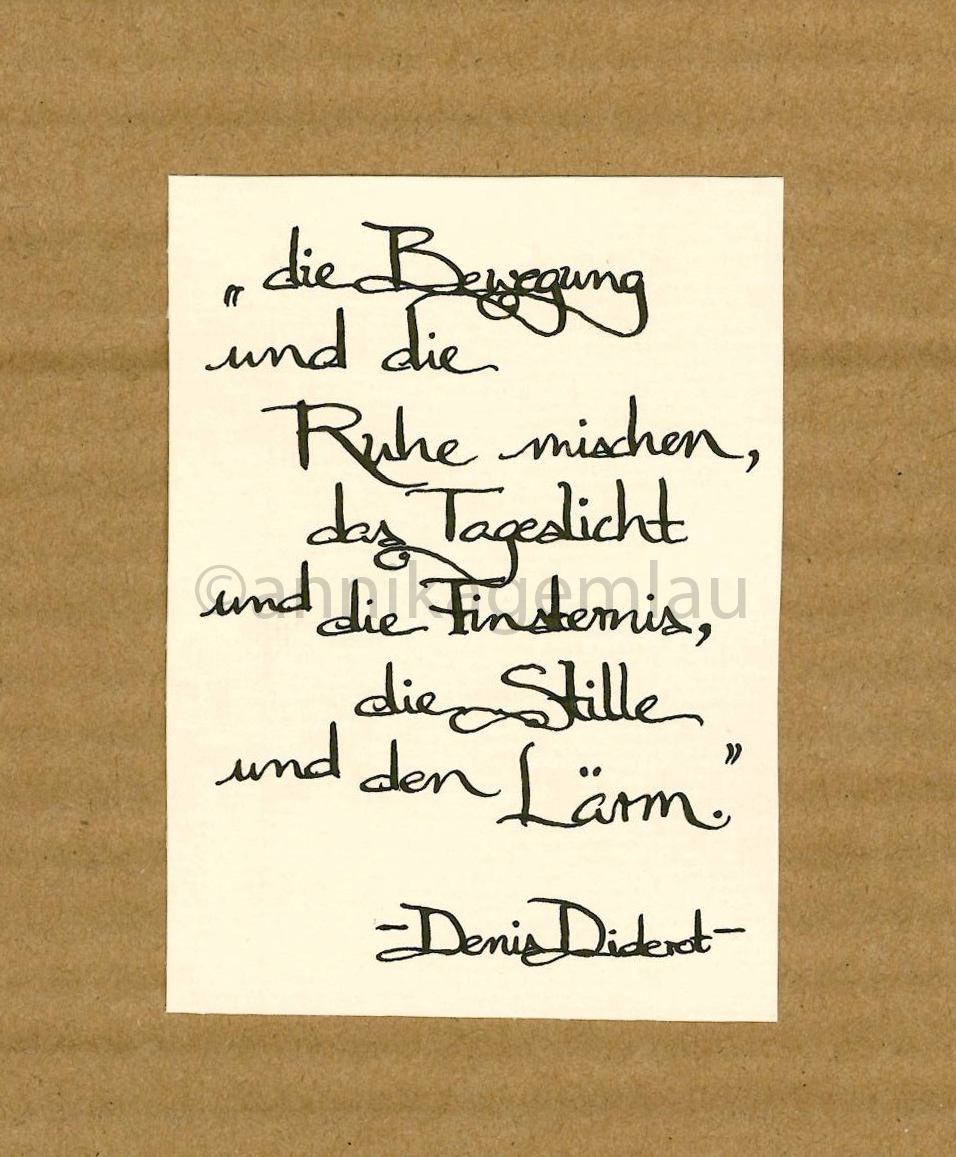 „die Bewegung
und die
Ruhe mischen,
das Tageslicht
©annikagemlau
und die Finsternis,
die Stille
und den Lärm.”
-Denis Diderot-